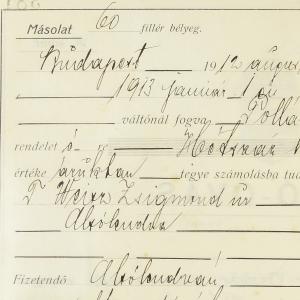 Másolat 60 fillér bélyeg.
Budapest 1912 augus
1913 január 1 én
váltónál fogva Pollá
rendelet é
értéke áruktan tegye számolásba tud
T Weisz Zsigmond úr
Alsólendva
Fizetendő Alsólendván